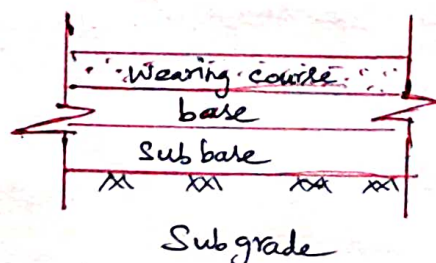 Wearing course
base
Sub base
Subgrade